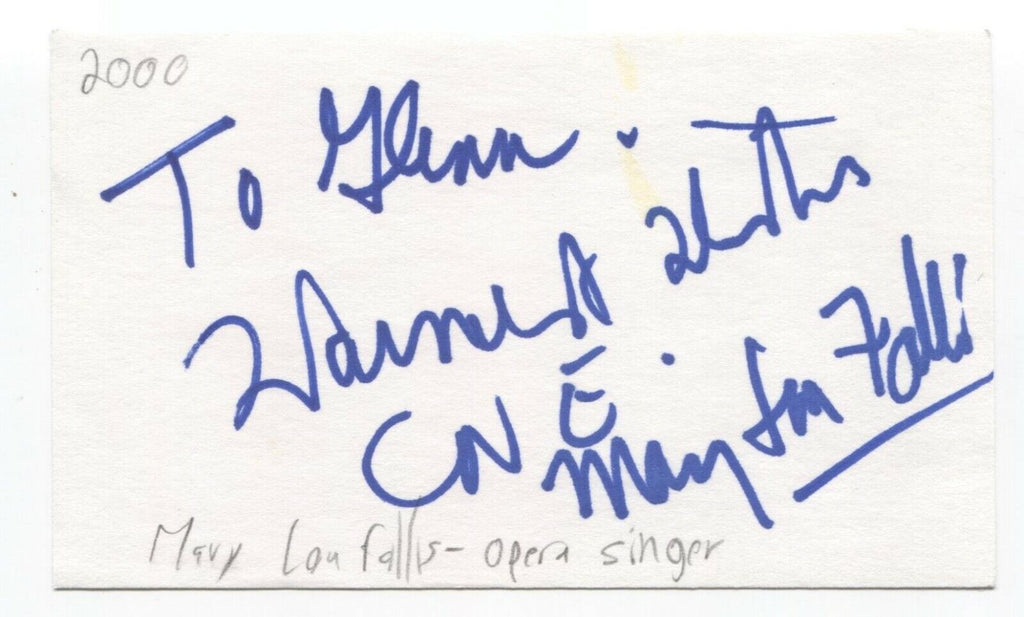 2000
To Glenn.
Warmest Wishes
Mary Lou Fallis
Mary Lou fallis - opera singer